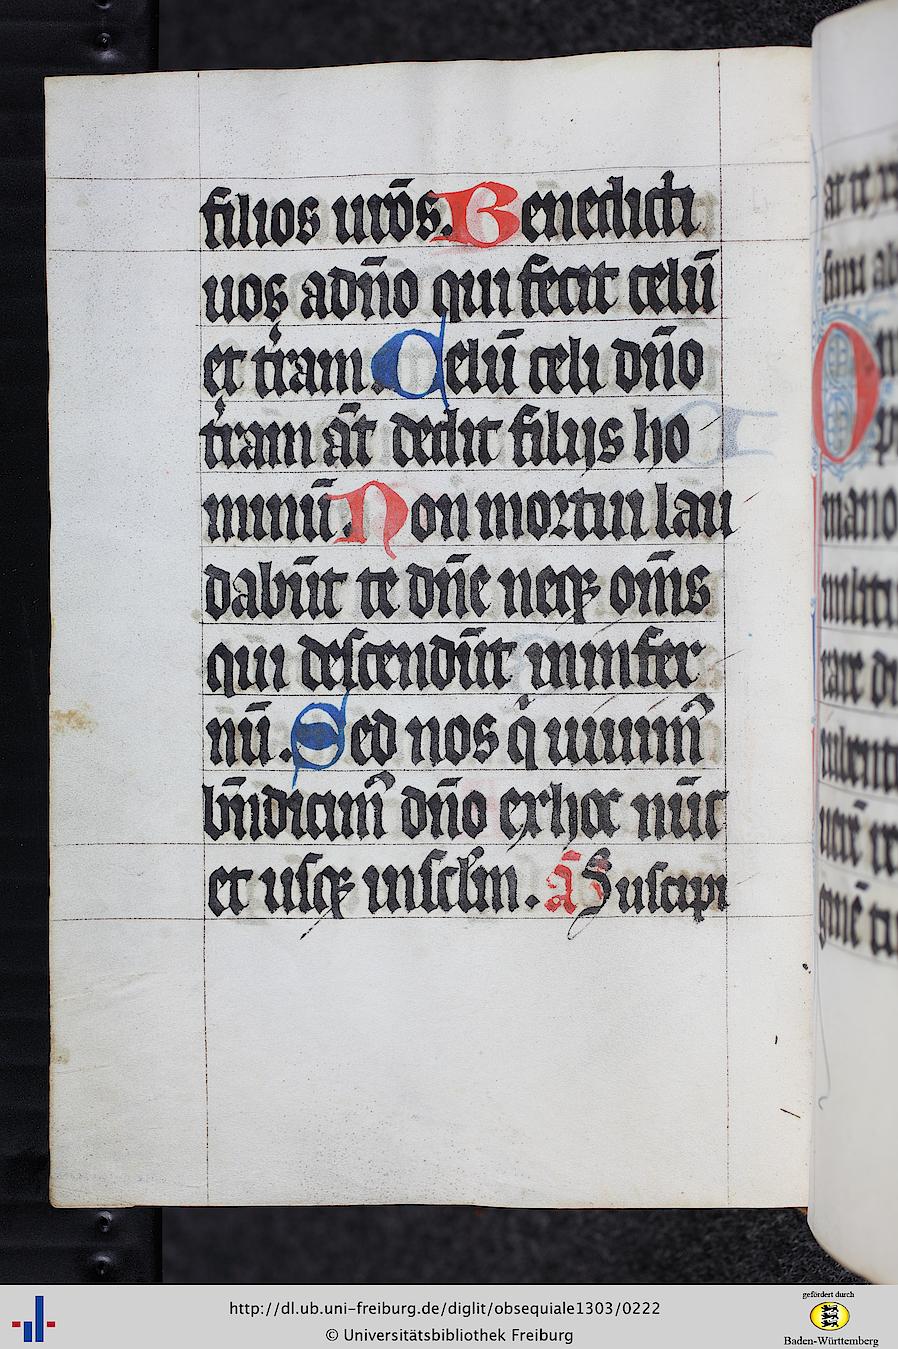 filios ur̄os. Benedicti
uos adn̄o qui fecit celū
et tr̄am. Celū celi dn̄o
tr̄am āt dedit filijs ho
minū. Non mortui lau
dabūt te dn̄e neqꝫ om̄s
qui descendūt in infer
nū. Sed nos q̄ uiuim᷒
bn̄dicim᷒ dn̄o exhoc nūc
et usqꝫ insclm̄. ā Suscipi
http://dl.ub.uni-freiburg.de/diglit/obsequiale1303/0222
© Universitätsbibliothek Freiburg
gefördert durch
Baden-Württemberg